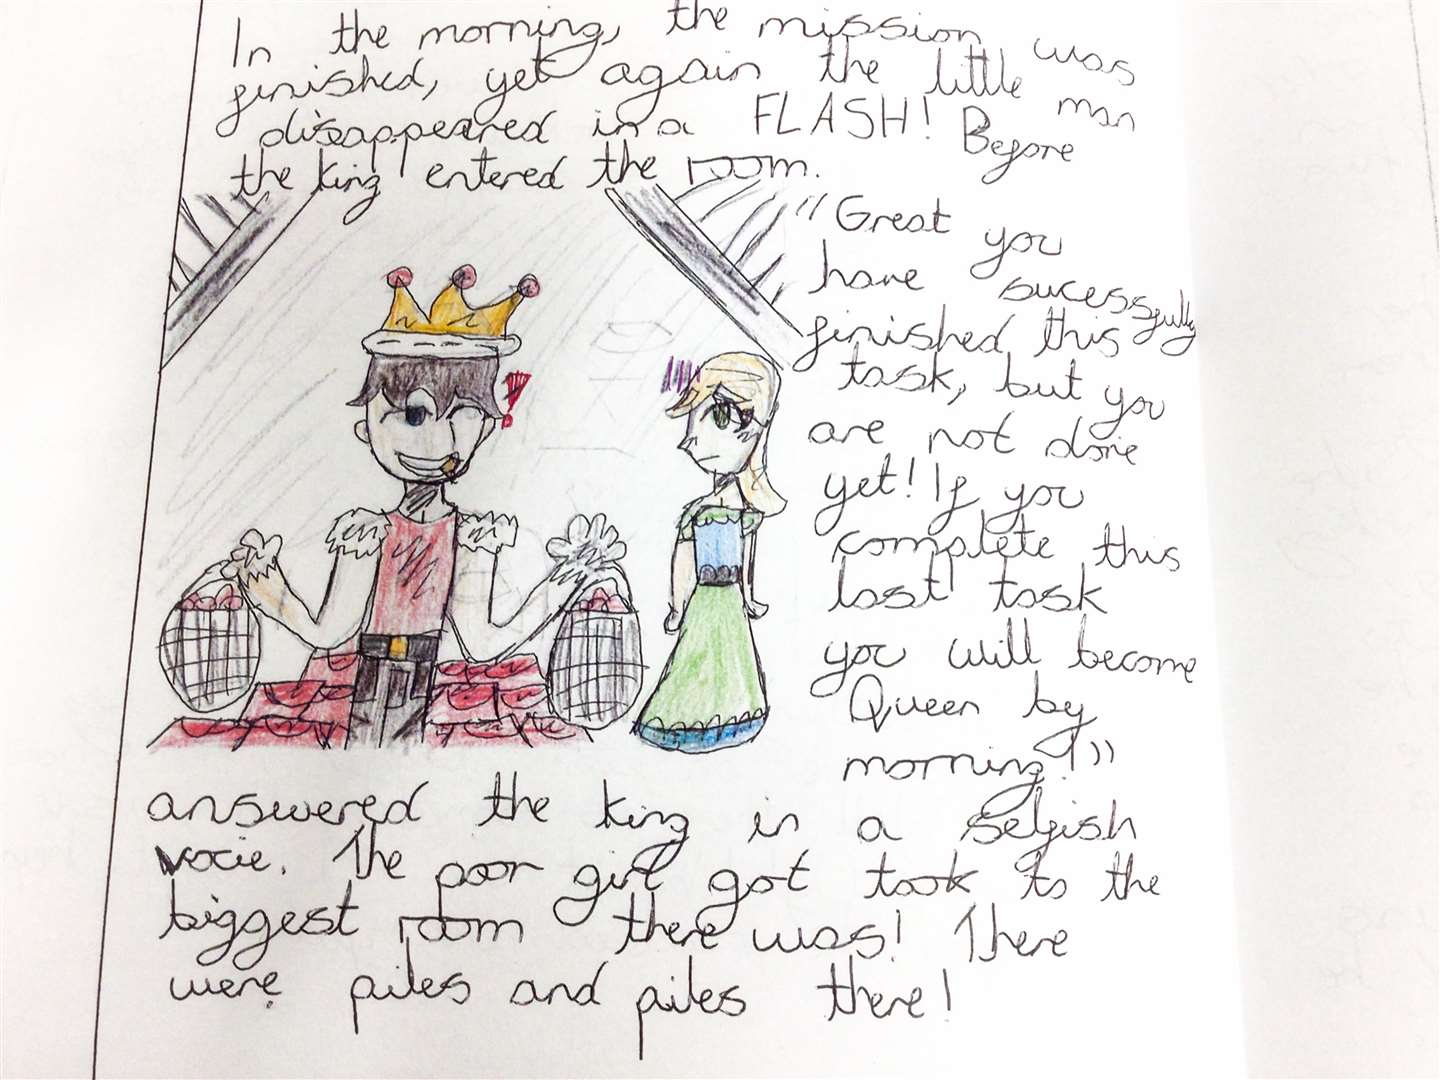 In the morning, the mission was
finished, yet again the little man
disappeared in a FLASH! Before
the king entered the room.
"Great you
have sucessfully
finished this
task, but you
are not done
yet! If you
complete this
last task
you will become
Queen by
morning!"
answered the king in a selfish
voxie. The poor girl got took to the
biggest room there was! There
were piles and piles there!